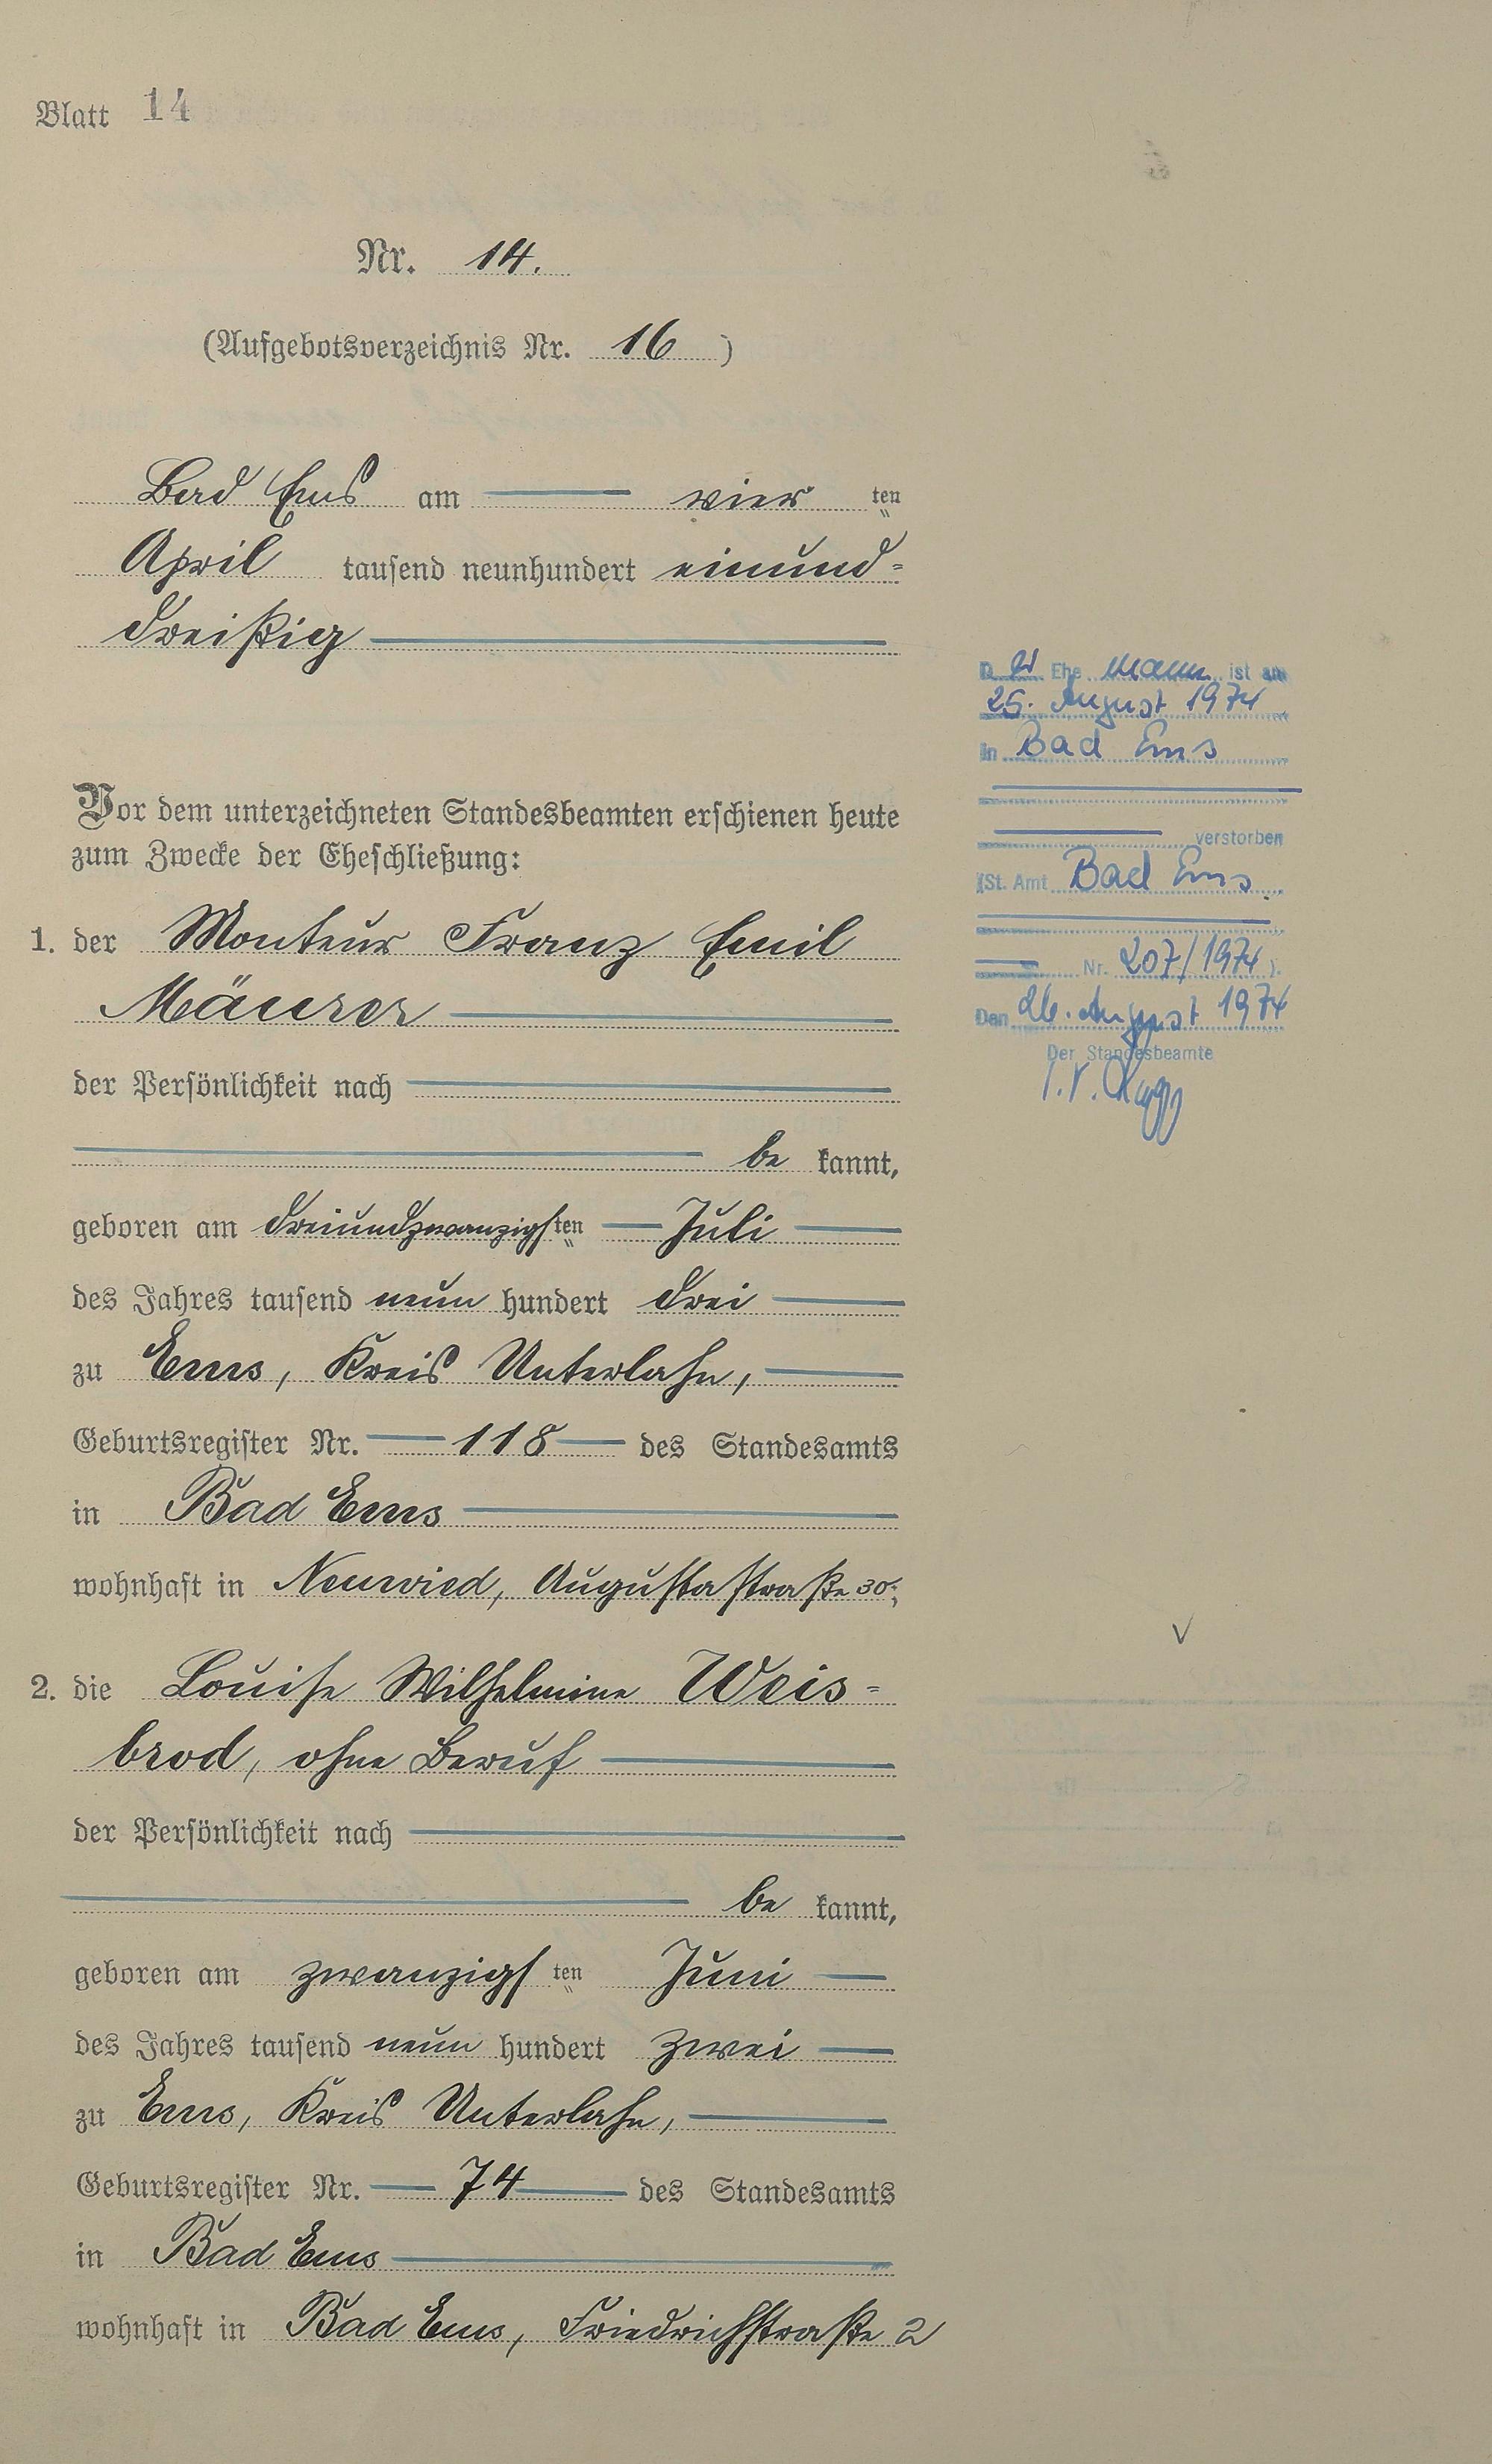 Blatt 14
Nr. 14.
(Aufgebotsverzeichnis Nr. 16)
Bad Ems am vier ten
April tausend neunhundert einund-
dreißig
Vor dem unterzeichneten Standesbeamten erschienen heute
zum Zwecke der Eheschließung:
1. der Monteur Franz Emil
Mäurer
der Persönlichkeit nach
be kannt,
geboren am dreiundzwanzigsten Juli
des Jahres tausend neun hundert drei
zu Ems, Kreis Unterlahn,
Geburtsregister Nr. 118 des Standesamts
in Bad Ems
wohnhaft in Neuwied, Augustastraße 30;
2. die Louise Wilhelmine Weis-
brod, ohne Beruf
der Persönlichkeit nach
be kannt,
geboren am zwanzigsten Juni
des Jahres tausend neun hundert zwei
zu Ems, Kreis Unterlahn,
Geburtsregister Nr. 74 des Standesamts
in Bad Ems
wohnhaft in Bad Ems, Friedrichstraße 2
Der Ehe mann ist am
25. August 1974
in Bad Ems
verstorben
(St. Amt Bad Ems
Nr. 207/1974).
Den 26. August 1974
Der Standesbeamte
I.V.